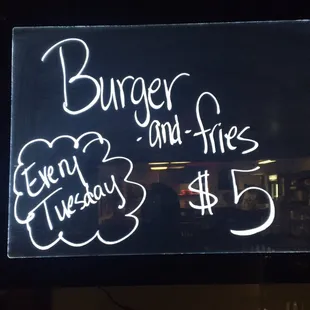 Burger
-and-fries
Every
Tuesday
$5